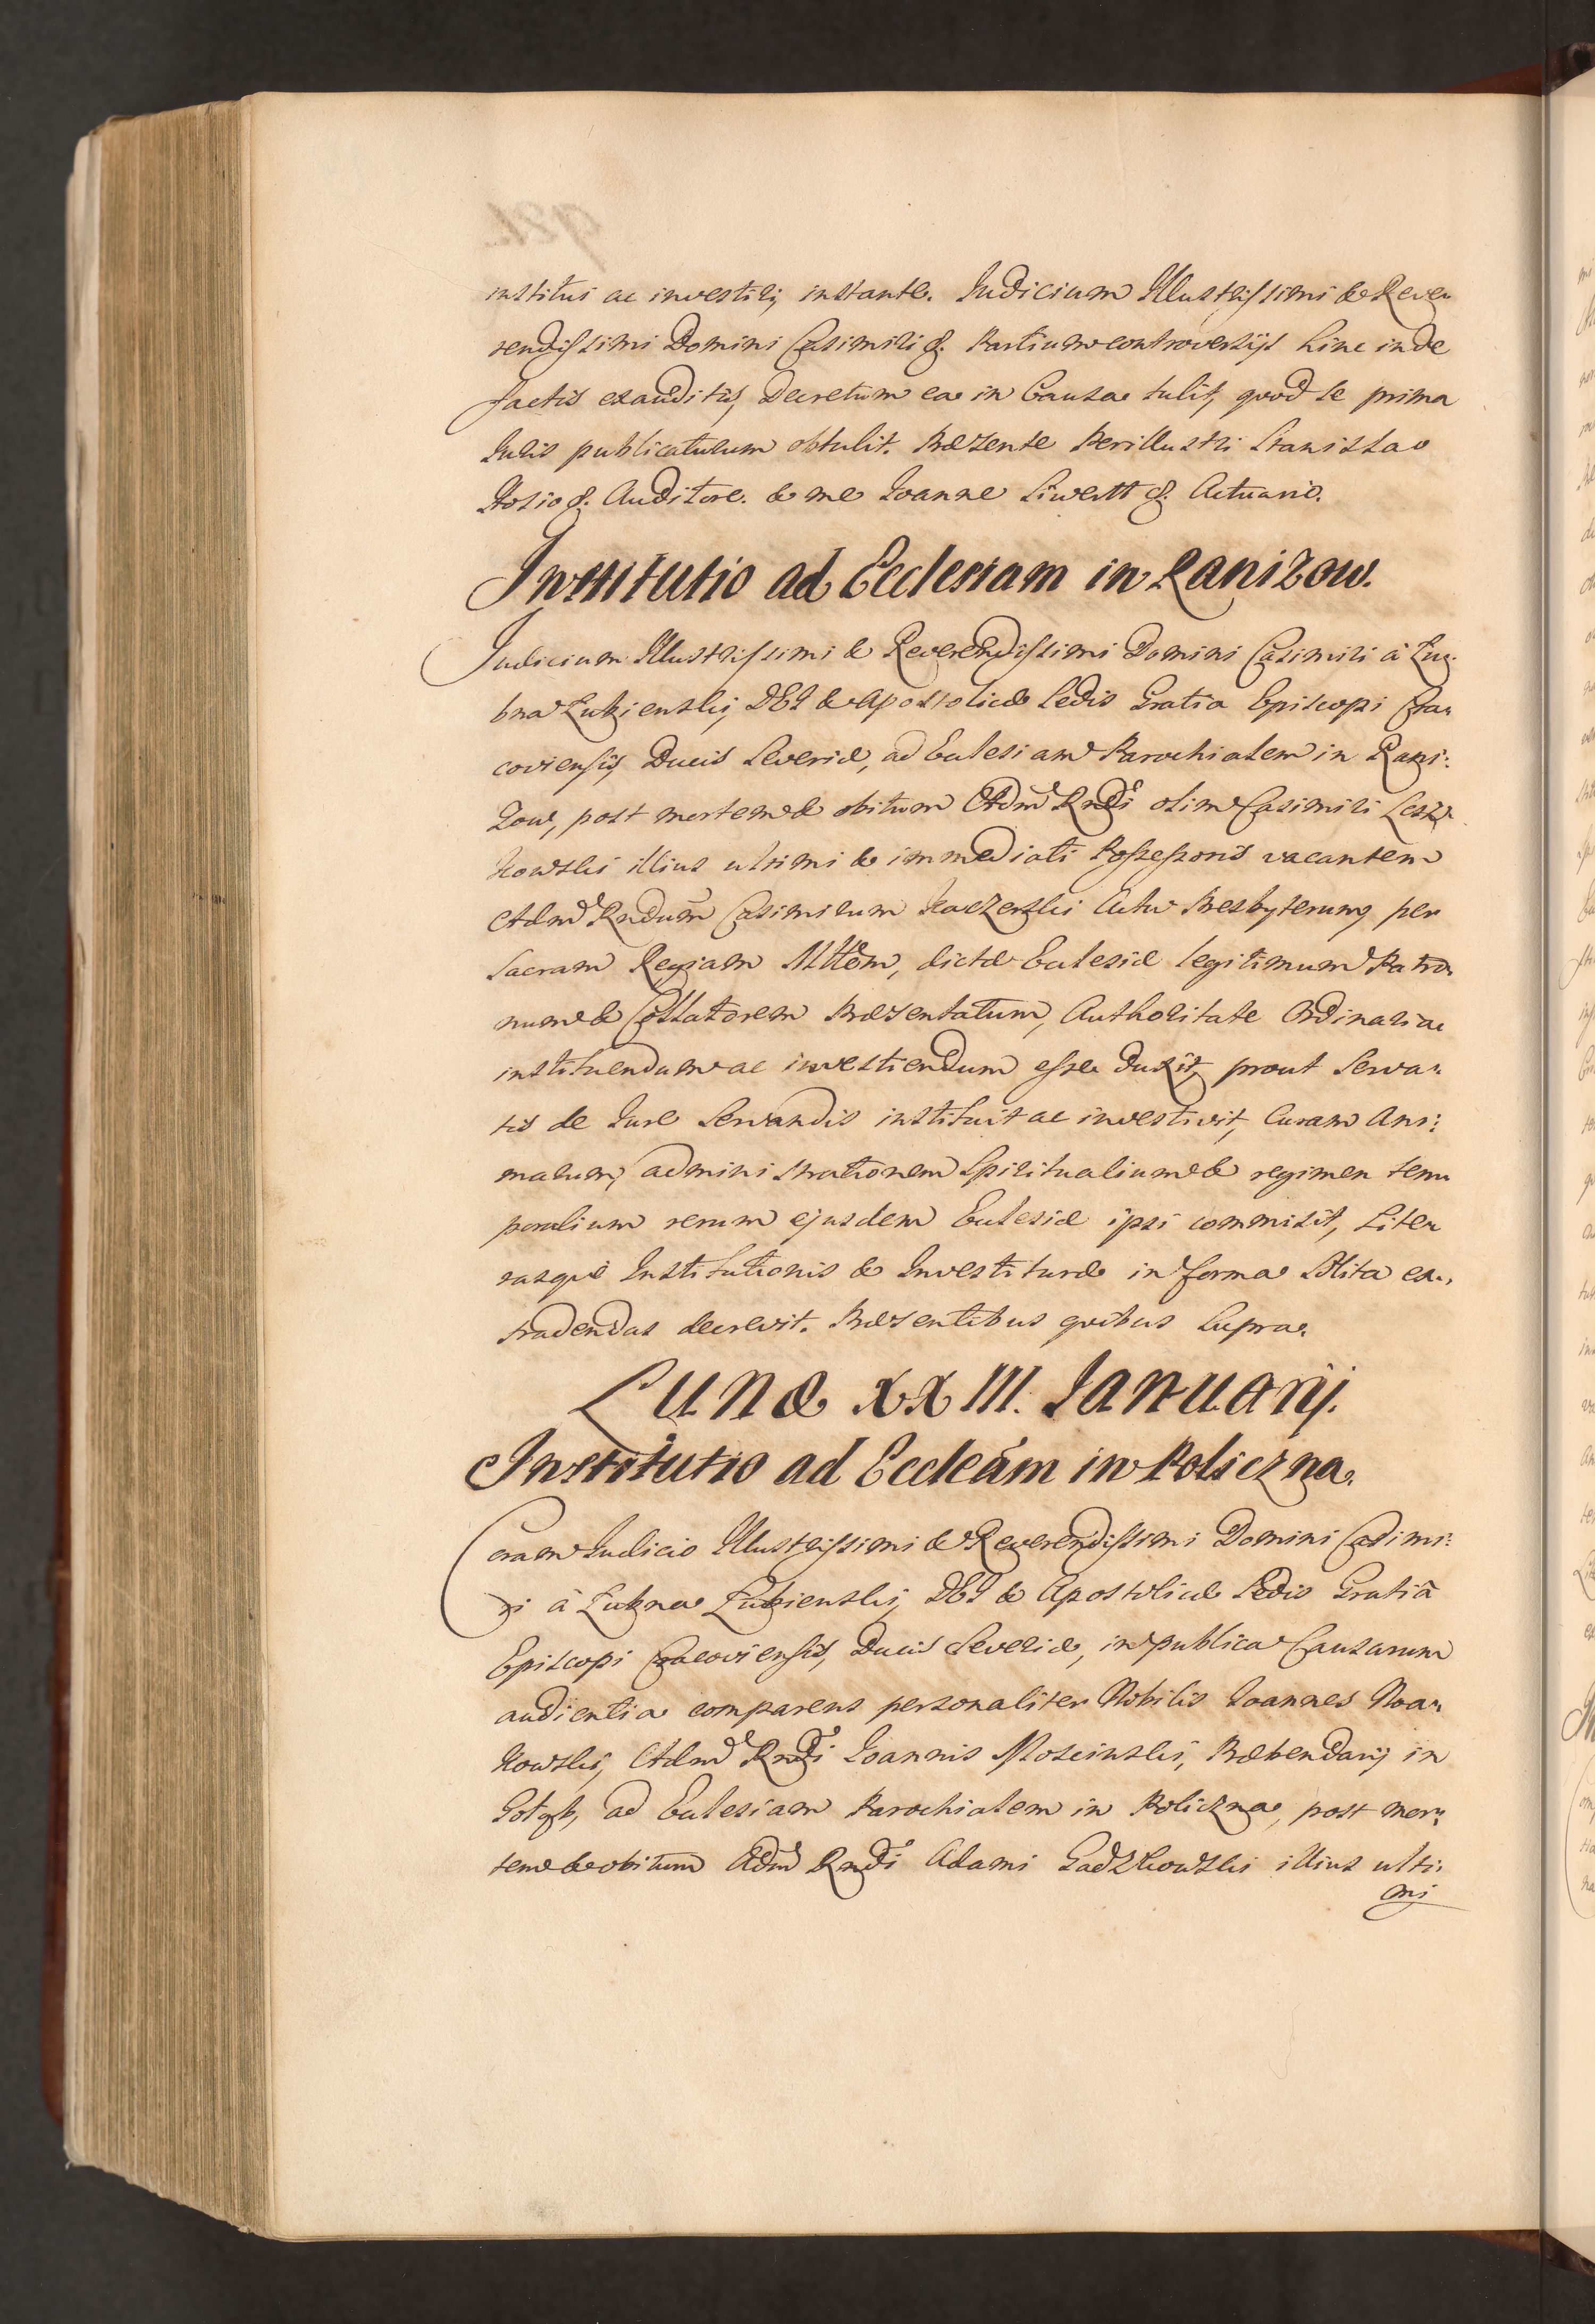 institui ac investiri, instante. Iudicium Illustrissimi & Reve„
rendissimi Domini Casimiri &. Partium controversijs hinc inde
factis exauditis, Decretum ea in Causa tulit, quod se prima
Iuris publicaturum obtulit. Præsente Perillustri Stanislao
Hosio &. Auditore. & me Ioanne Siwertt &. Actuario.
Institutio ad Ecclesiam in Ranizow.
Iudicium Illustrissimi & Reverendissimi Domini Casimiri à Łu„
bna Łubienski, DEI & Apostolicæ Sedis Gratia Episcopi Cra„
coviensis, Ducis Severiæ, ad Eccłesiam Parochialem in Rani:
zow, post mortem & obitum Adm̃ Rndi olim Casimiri
kowski illius ultimi & immediati Possessoris vacantem
Adm̃ Rndum Casimirum Kaczerski Actu Presbyterum, per
Sacram Regiam Mttem, dictæ Ecclesiæ legitimum Patro„
num & Collatorem Præsentatum, Authoritate Ordinaria
instituendum ac investiendum esse duxit, prout Serva„
tis de Iure Servandis instituit ac investivit, Curam Ani:
marum, administrationem Spiritualium & regimen tem„
poralium rerum ejusdem Ecclesiæ ipsi commisit, Liter„
rasque Institutionis & Investituræ in forma Solita ex„
tradendas decrevit. Præsentibus quibus Supra.
Lunæ XXIII. Ianuarij.
Institutio ad Eccleãm in Policzna.
Coram Iudicio Illustrissimi & Reverendissimi Domini Casimi:
ri à Łubna Łubienski, DEI & Apostolicæ Sedis Gratiâ
Episcopi Cracoviensis, Ducis Severiæ, in publica Causarum
audientia comparens personaliter Nobilis Ioannes Noa„
kowski, Adm̃ Rndi Ioannis Moscinski, Præbendarij in
Gołąb, ad Ecclesiam Parochialem in Policzna, post mor„
tem & obitum Adm̃ Rndi Adami Gadzkowski illius ulti:
mi